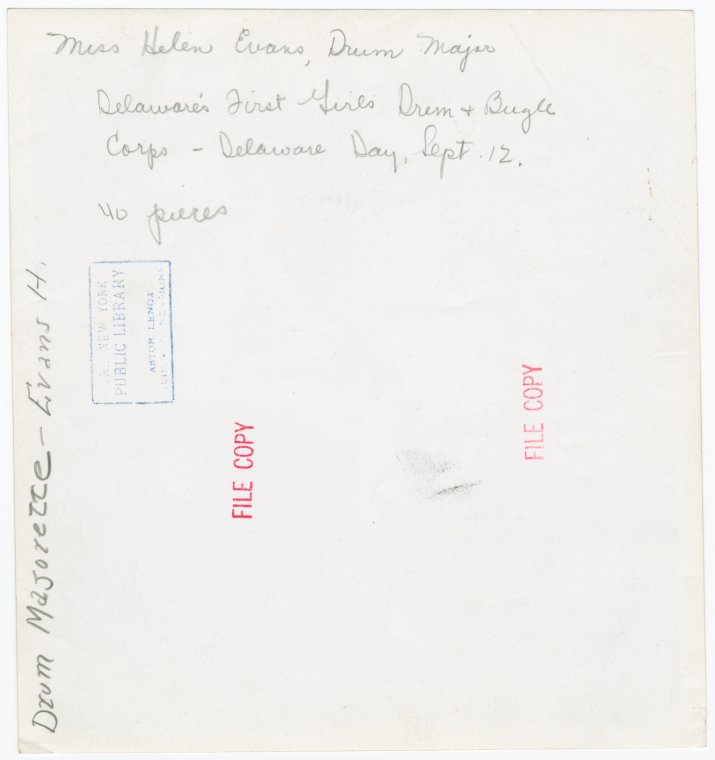 Miss Helen Evans, Drum Major
Delaware's First Girls Drum + Bugle
Corps – Delaware Day, Sept. 12.
40 pieces
NEW YORK
PUBLIC LIBRARY
ASTOR LENOX
FILE COPY
FILE COPY
Drum Majorette – Evans H.